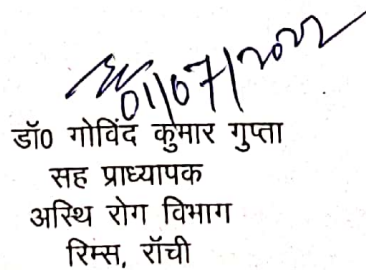 01/07/2022
डॉ0 गोविंद कुमार गुप्ता
सह प्राध्यापक
अस्थि रोग विभाग
रिम्स, राँची